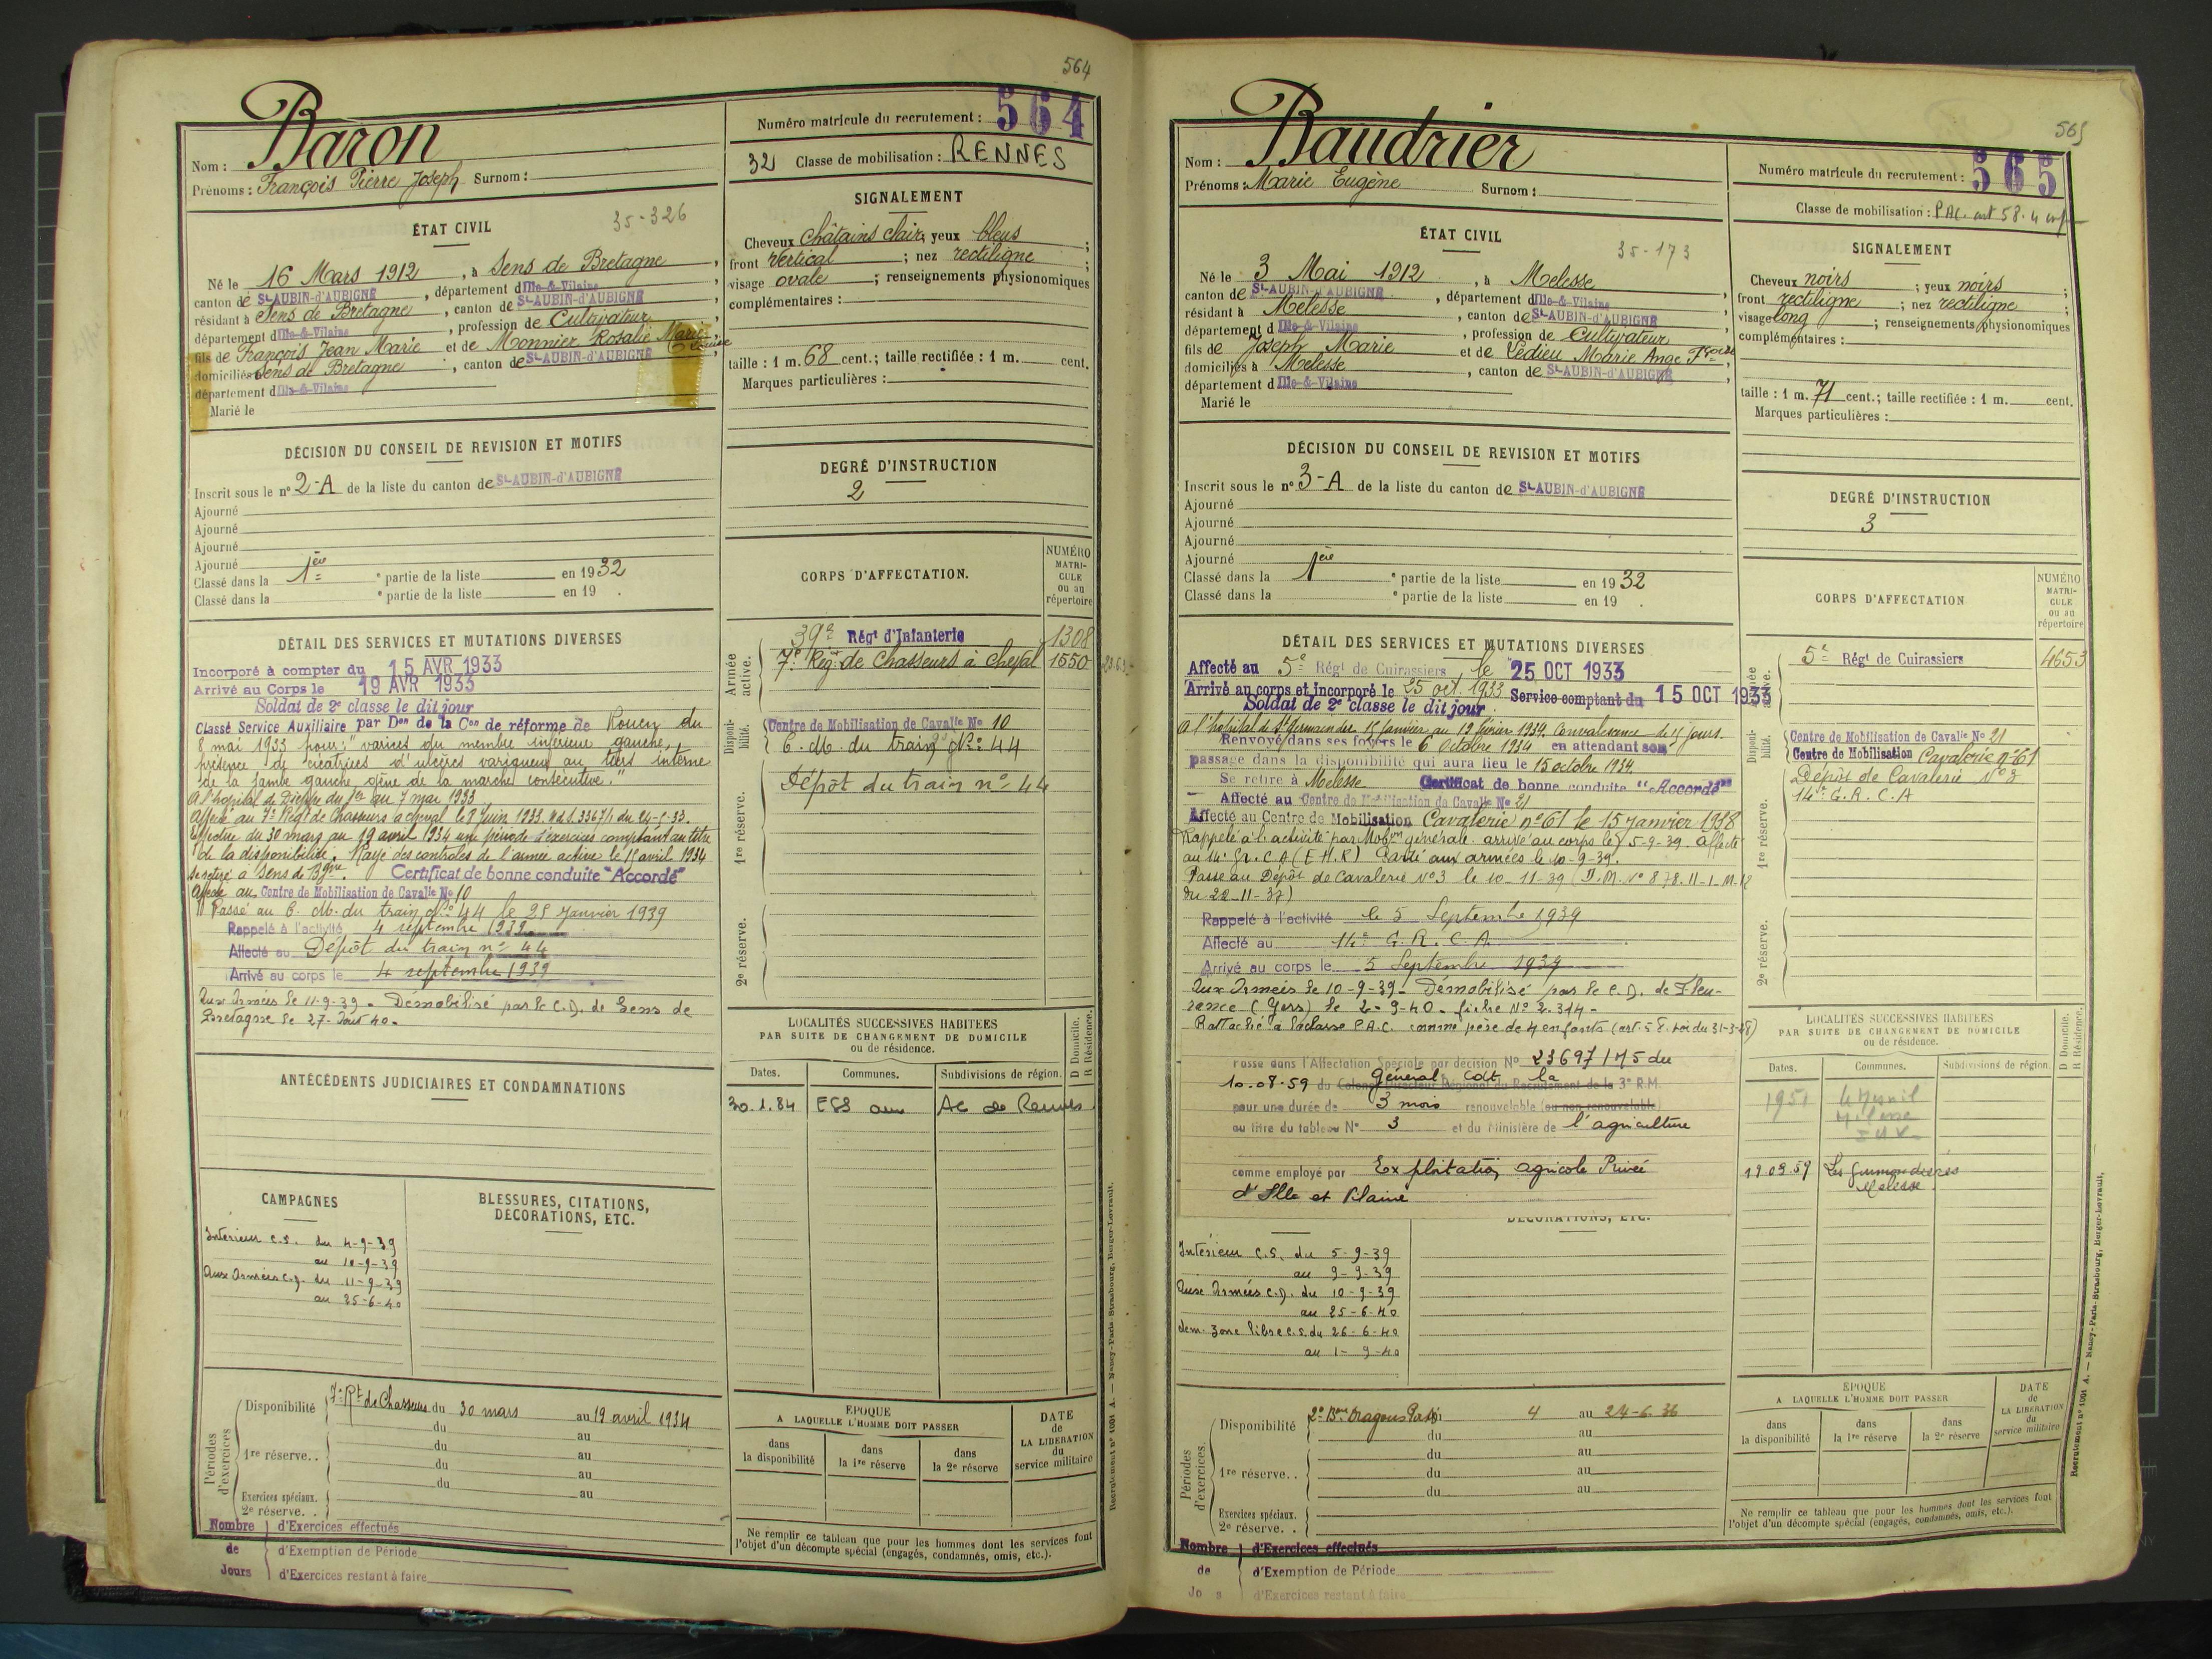 564
Nom : Baron
Prénoms : François Pierre Joseph Surnom :
Numéro matricule du recrutement : 564
32 Classe de mobilisation : RENNES
ÉTAT CIVIL
35-326
Né le 16 Mars 1912, à Sens de Bretagne,
canton de St-AUBIN-d'AUBIGNÉ, département d Ille-&-Vilaine,
résidant à Sens de Bretagne, canton de St-AUBIN-d'AUBIGNÉ,
département d Ille-&-Vilaine, profession de Cultivateur,
fils de François Jean Marie et de Monnier Rosalie Marie
domiciliés à Sens de Bretagne, canton de St-AUBIN-d'AUBIGNÉ,
département d Ille-&-Vilaine
Marié le
SIGNALEMENT
Cheveux Châtains clair ; yeux bleus ;
front vertical ; nez rectiligne ;
visage ovale ; renseignements physionomiques
complémentaires :
taille : 1 m. 68 cent.; taille rectifiée : 1 m. cent.
Marques particulières :
DÉCISION DU CONSEIL DE REVISION ET MOTIFS
Inscrit sous le n° 2-A de la liste du canton de St-AUBIN-d'AUBIGNÉ
Ajourné
Ajourné
Ajourné
Ajourné
Classé dans la 1ère e partie de la liste en 1932
Classé dans la e partie de la liste en 19 .
DEGRÉ D'INSTRUCTION
2
DÉTAIL DES SERVICES ET MUTATIONS DIVERSES
Incorporé à compter du 15 AVR 1933
Arrivé au Corps le 19 AVR 1933
Soldat de 2e classe le dit jour
Classé Service Auxiliaire par Don de la Con de réforme de Rouen du
8 mai 1933 pour : "varices du membre inférieur gauche,
présence de cicatrices d'ulcères variqueux au tiers interne
de la jambe gauche, gêne de la marche consécutive."
A l'hopital de Dieppe du 1er au 7 mai 1933
Affecté au 7e Régt de Chasseurs à cheval le 2 Juin 1933. du 24-5-33.
Effectue du 30 mars au 19 avril 1934 une période d'exercices comptant au titre
de la disponibilité. Rayé des contrôles de l'armée active le 15 avril 1934
Se retire à Sens de Bgne. Certificat de bonne conduite "Accordé"
Affecté au Centre de Mobilisation de Cavalie No 10
Passé au C. M. du train No 44 le 25 Janvier 1939
Rappelé à l'activité 4 septembre 1939
Affecté au Dépôt du train no 44
Arrivé au corps le 4 septembre 1939
Aux Armées le 11-9-39 - Démobilisé par le C.D. de Sens de
Bretagne le 27-Aout 40-
CORPS D'AFFECTATION.
NUMÉRO MATRICULE ou au répertoire
Armée active.
39e Régt d'Infanterie 1308
7e Régt de Chasseurs à cheval 1550
Disponibilité.
Centre de Mobilisation de Cavalie No 10
C. M. du train No 44
1re réserve.
Dépôt du train no 44
2e réserve.
ANTÉCÉDENTS JUDICIAIRES ET CONDAMNATIONS
LOCALITÉS SUCCESSIVES HABITEES
PAR SUITE DE CHANGEMENT DE DOMICILE
ou de résidence.
D Domicile. R Résidence.
Dates. Communes. Subdivisions de région.
30.1.84 AC de Rennes
CAMPAGNES
Intérieur C.S. du 4-9-39
au 10-9-39
Aux Armées C.D. du 11-9-39
au 25-6-40
BLESSURES, CITATIONS,
DÉCORATIONS, ETC.
Périodes d'exercices
Disponibilité 7e Rt de Chasseurs du 30 mars au 19 avril 1934
du au
1re réserve.. du au
du au
du au
Exercices spéciaux.
2e réserve. .
Nombre de Jours
d'Exercices effectués
d'Exemption de Période
d'Exercices restant à faire
ÉPOQUE
A LAQUELLE L'HOMME DOIT PASSER
dans la disponibilité
dans la 1re réserve
dans la 2e réserve
DATE de LA LIBERATION du service militaire
Ne remplir ce tableau que pour les hommes dont les services font
l'objet d'un décompte spécial (engagés, condamnés, omis, etc.).
Recrutement n° 1001 A. — Nancy-Paris-Strasbourg, Berger-Levrault.
565
Nom : Baudrier
Prénoms : Marie Eugène Surnom :
Numéro matricule du recrutement : 565
Classe de mobilisation : PAC. art 58. 4 enf
ÉTAT CIVIL
35-173
Né le 3 Mai 1912, à Melesse
canton de St-AUBIN-d'AUBIGNÉ, département d Ille-&-Vilaine,
résidant à Melesse, canton de St-AUBIN-d'AUBIGNÉ,
département d Ille-&-Vilaine, profession de Cultivateur
fils de Joseph Marie et de Ledieu Marie Ange Fçoise
domiciliés à Melesse, canton de St-AUBIN-d'AUBIGNÉ,
département d Ille-&-Vilaine
Marié le
SIGNALEMENT
Cheveux noirs ; yeux noirs ;
front rectiligne ; nez rectiligne ;
visage long ; renseignements physionomiques
complémentaires :
taille : 1 m. 71 cent.; taille rectifiée : 1 m. cent.
Marques particulières :
DÉCISION DU CONSEIL DE REVISION ET MOTIFS
Inscrit sous le n° 3-A de la liste du canton de St-AUBIN-d'AUBIGNÉ
Ajourné
Ajourné
Ajourné
Ajourné
Classé dans la 1ère e partie de la liste en 1932
Classé dans la e partie de la liste en 19 .
DEGRÉ D'INSTRUCTION
3
DÉTAIL DES SERVICES ET MUTATIONS DIVERSES
Affecté au 5e Régt de Cuirassiers le 25 OCT 1933
Arrivé au corps et incorporé le 25 oct. 1933 Service comptant du 15 OCT 1933
Soldat de 2e classe le dit jour.
A l'hôpital de St Germain du 15 Janvier au 19 février 1934. Convalescence de 15 jours.
Renvoyé dans ses foyers le 6 Octobre 1934 en attendant son
passage dans la disponibilité qui aura lieu le 15 octobre 1934.
Se retire à Melesse Certificat de bonne conduite "Accordé"
Affecté au Centre de Mobilisation de Cavalie No 21
Affecté au Centre de Mobilisation Cavalerie no 61 le 15 Janvier 1938
Rappelé à l'activité par Mobon générale arrivé au corps le 5-9-39 affecté
au 14e Gr. C A (E H R) Parti aux armées le 10-9-39.
Passé au Dépôt de Cavalerie No 3 le 10-11-39 (D.M. No 878.11-1.M.
du 22-11-37)
Rappelé à l'activité le 5 Septembre 1939
Affecté au 14e G. R. C. A.
Arrivé au corps le 5 Septembre 1939
Aux Armées le 10-9-39- Démobilisé par le C.D. de Fleu-
rance (Gers) le 2-9-40- fiche No 2.314-
Rattaché à la classe P.A.C. comme père de 4 enfants (art. 58. loi du 31-3-28)
Passé dans l'Affectation Spéciale par décision No 23697/M5 du
10.08.59 du Général Cdt la Colonel Directeur Régional du Recrutement de la 3e R.M.
pour une durée de 3 mois renouvelable (ou non renouvelable)
au titre du tableau No 3 et du Ministère de l'agriculture
comme employé par Exploitation agricole Privée
d'Ille et Vilaine
CORPS D'AFFECTATION
NUMÉRO MATRICULE ou au répertoire
Armée active.
5e Régt de Cuirassiers 4653
Disponibilité.
Centre de Mobilisation de Cavalie No 21
Centre de Mobilisation Cavalerie no 61
1re réserve.
Dépôt de Cavalerie No 3
14e G.R.C.A
2e réserve.
LOCALITÉS SUCCESSIVES HABITEES
PAR SUITE DE CHANGEMENT DE DOMICILE
ou de résidence.
D Domicile. R Résidence.
Dates. Communes. Subdivisions de région.
1951 Le Mesnil
Melesse
I et V
19.09.59 Melesse
DÉCORATIONS, ETC.
Intérieur C.S. du 5-9-39
au 9-9-39
Aux Armées C.D. du 10-9-39
au 25-6-40
dem. zone libre C.S. du 26-6-40
au 1-9-40
Périodes d'exercices.
Disponibilité 2e Bon Dragons Portés 4 au 24-6-36
du au
du au
1re réserve. . du au
du au
Exercices spéciaux.
2e réserve. .
Nombre de Jo s
d'Exercices effectués
d'Exemption de Période
d'Exercices restant à faire
ÉPOQUE
A LAQUELLE L'HOMME DOIT PASSER
dans la disponibilité
dans la 1re réserve
dans la 2e réserve
DATE de LA LIBÉRATION du service militaire
Ne remplir ce tableau que pour les hommes dont les services font
l'objet d'un décompte spécial (engagés, condamnés, omis, etc.).
Recrutement n° 1001 A. — Nancy-Paris-Strasbourg, Berger-Levrault.